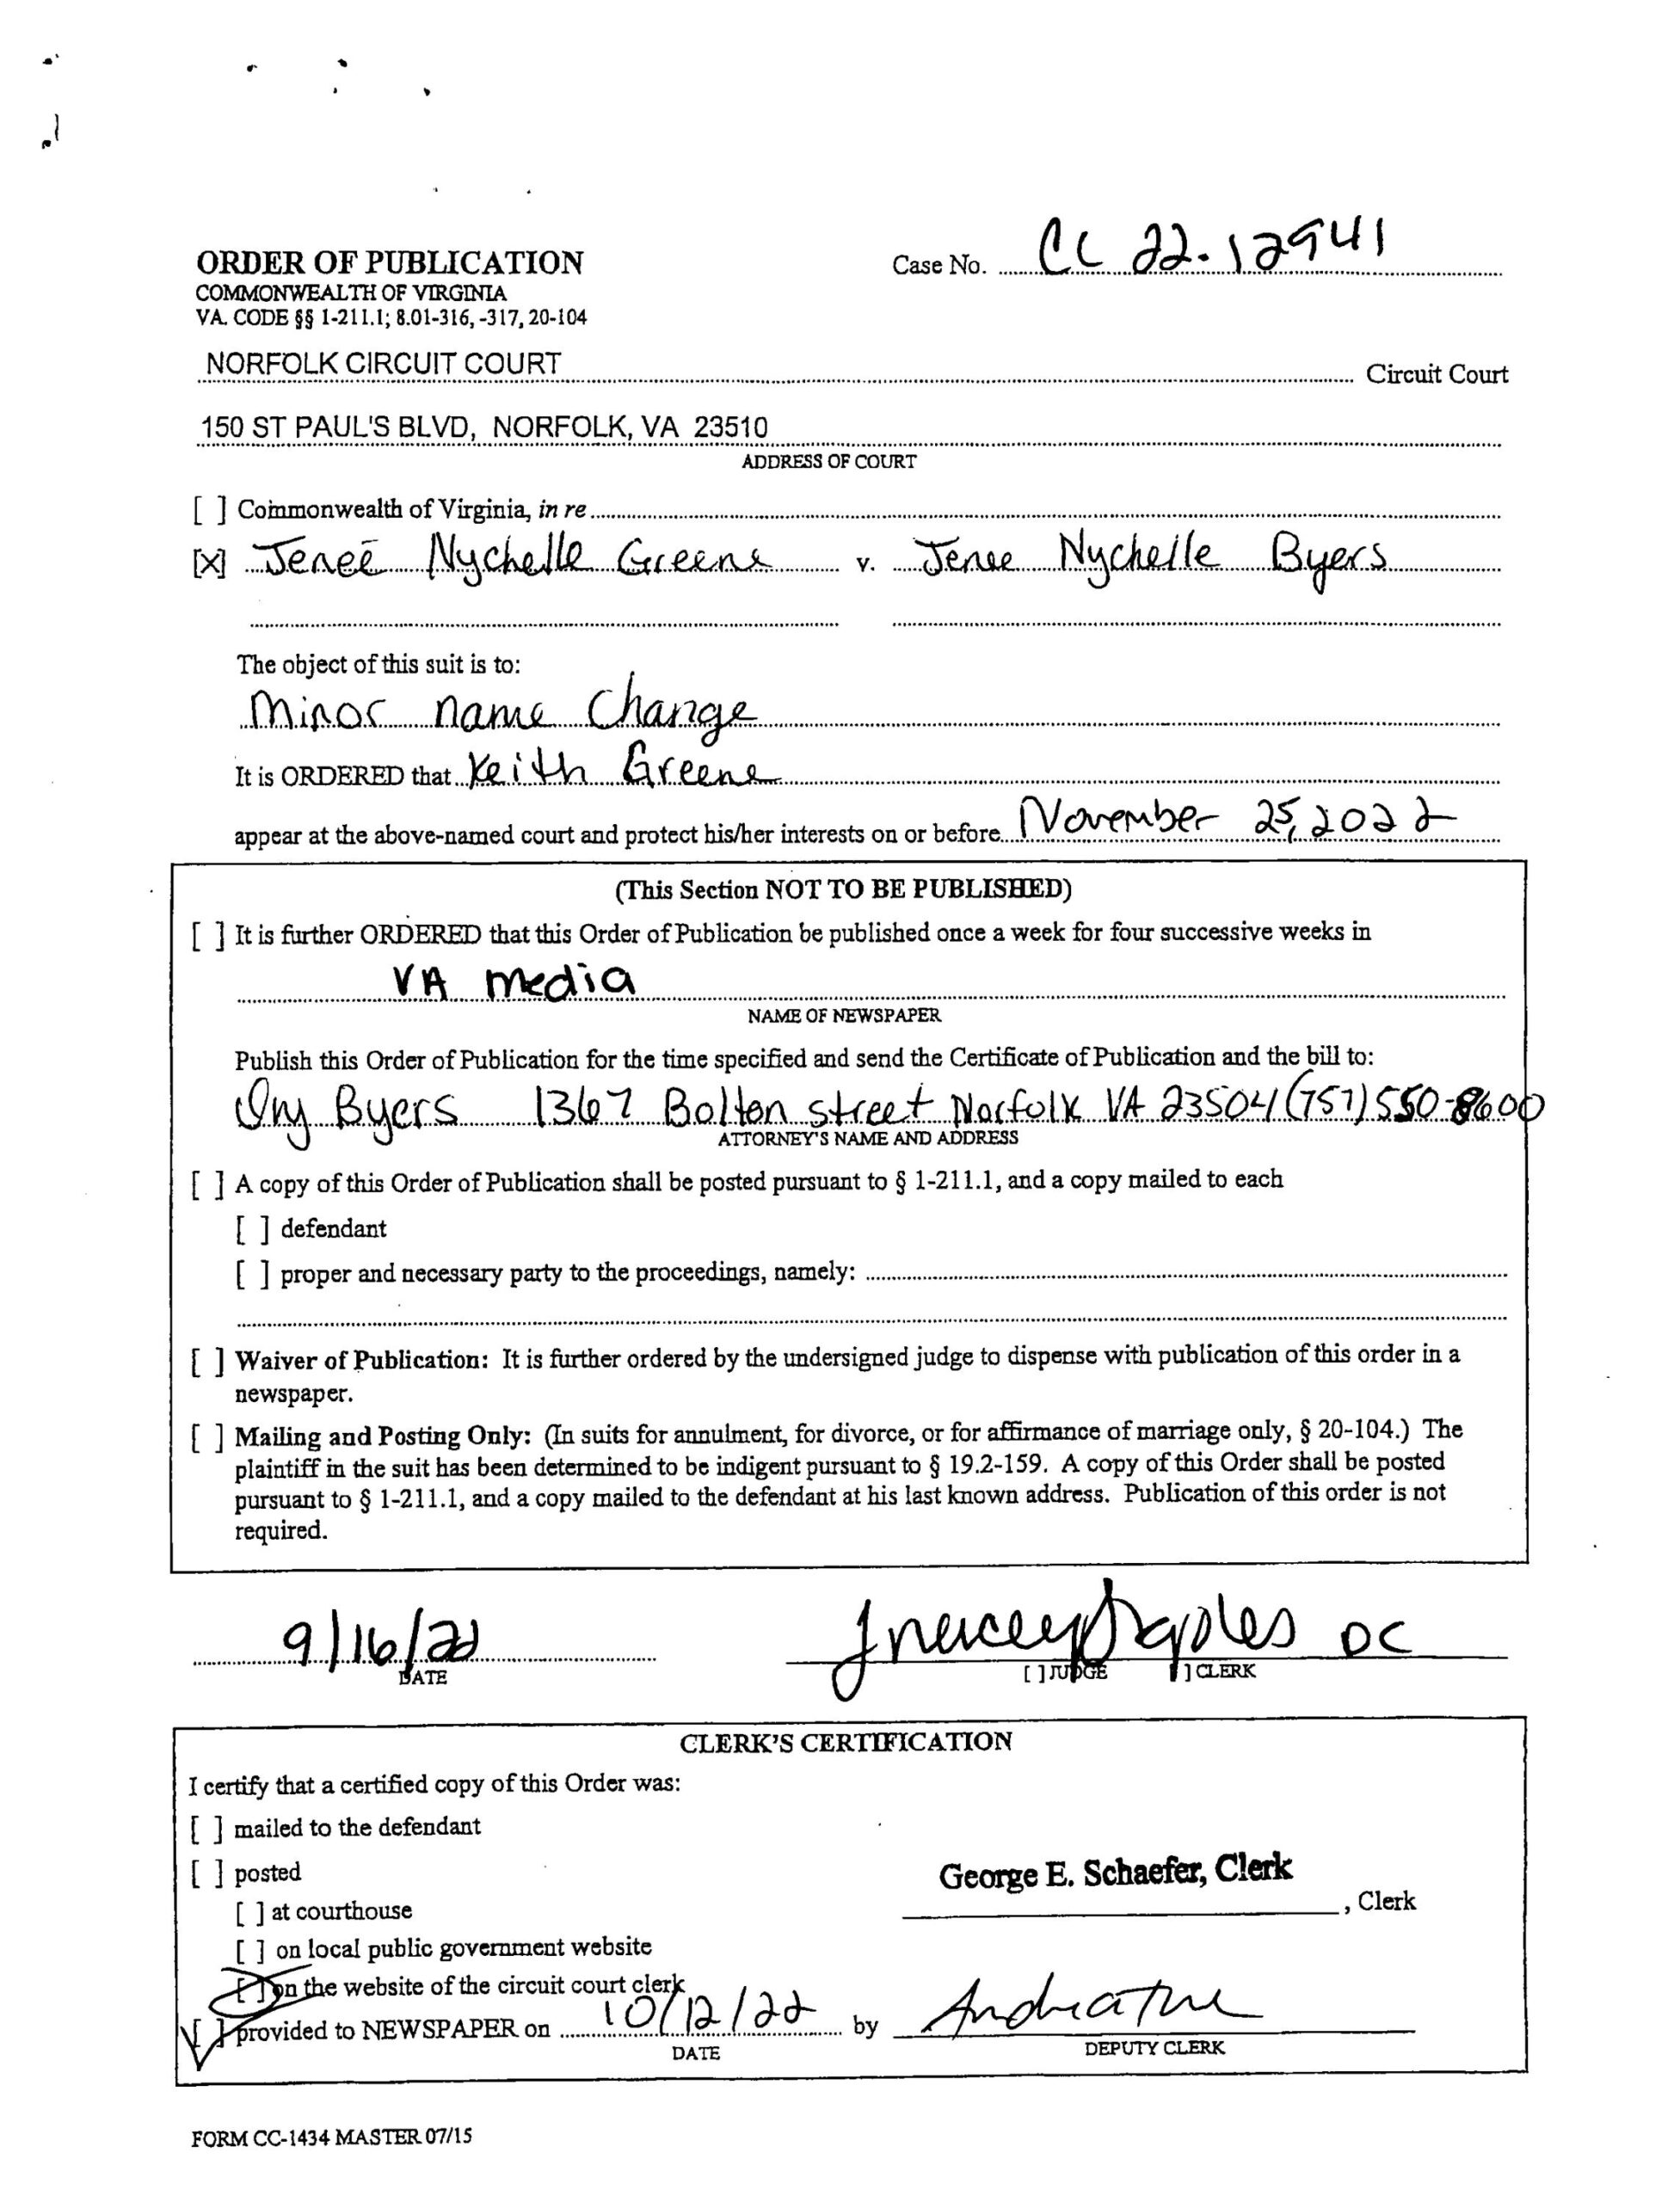 ORDER OF PUBLICATION
Case No. CC 22-12941
COMMONWEALTH OF VIRGINIA
VA. CODE §§ 1-211.1; 8.01-316, -317, 20-104
NORFOLK CIRCUIT COURT Circuit Court
150 ST PAUL'S BLVD, NORFOLK, VA 23510
ADDRESS OF COURT
[ ] Commonwealth of Virginia, in re
[X] Jeneé Nychelle Greene v. Jenee Nychelle Byers
The object of this suit is to:
Minor name Change
It is ORDERED that Keith Greene
appear at the above-named court and protect his/her interests on or before November 25, 2022
(This Section NOT TO BE PUBLISHED)
[ ] It is further ORDERED that this Order of Publication be published once a week for four successive weeks in
VA media
NAME OF NEWSPAPER
Publish this Order of Publication for the time specified and send the Certificate of Publication and the bill to:
Byers 1367 Bolton street Norfolk VA 23504 (757) 550-8600
ATTORNEY'S NAME AND ADDRESS
[ ] A copy of this Order of Publication shall be posted pursuant to § 1-211.1, and a copy mailed to each
[ ] defendant
[ ] proper and necessary party to the proceedings, namely:
[ ] Waiver of Publication: It is further ordered by the undersigned judge to dispense with publication of this order in a
newspaper.
[ ] Mailing and Posting Only: (In suits for annulment, for divorce, or for affirmance of marriage only, § 20-104.) The
plaintiff in the suit has been determined to be indigent pursuant to § 19.2-159. A copy of this Order shall be posted
pursuant to § 1-211.1, and a copy mailed to the defendant at his last known address. Publication of this order is not
required.
9/16/22 DC
DATE [ ] JUDGE [ ] CLERK
CLERK'S CERTIFICATION
I certify that a certified copy of this Order was:
[ ] mailed to the defendant
[ ] posted
George E. Schaefer, Clerk
[ ] at courthouse
, Clerk
[ ] on local public government website
[ ] on the website of the circuit court clerk
[ ] provided to NEWSPAPER on 10/12/22 by
DATE DEPUTY CLERK
FORM CC-1434 MASTER 07/15